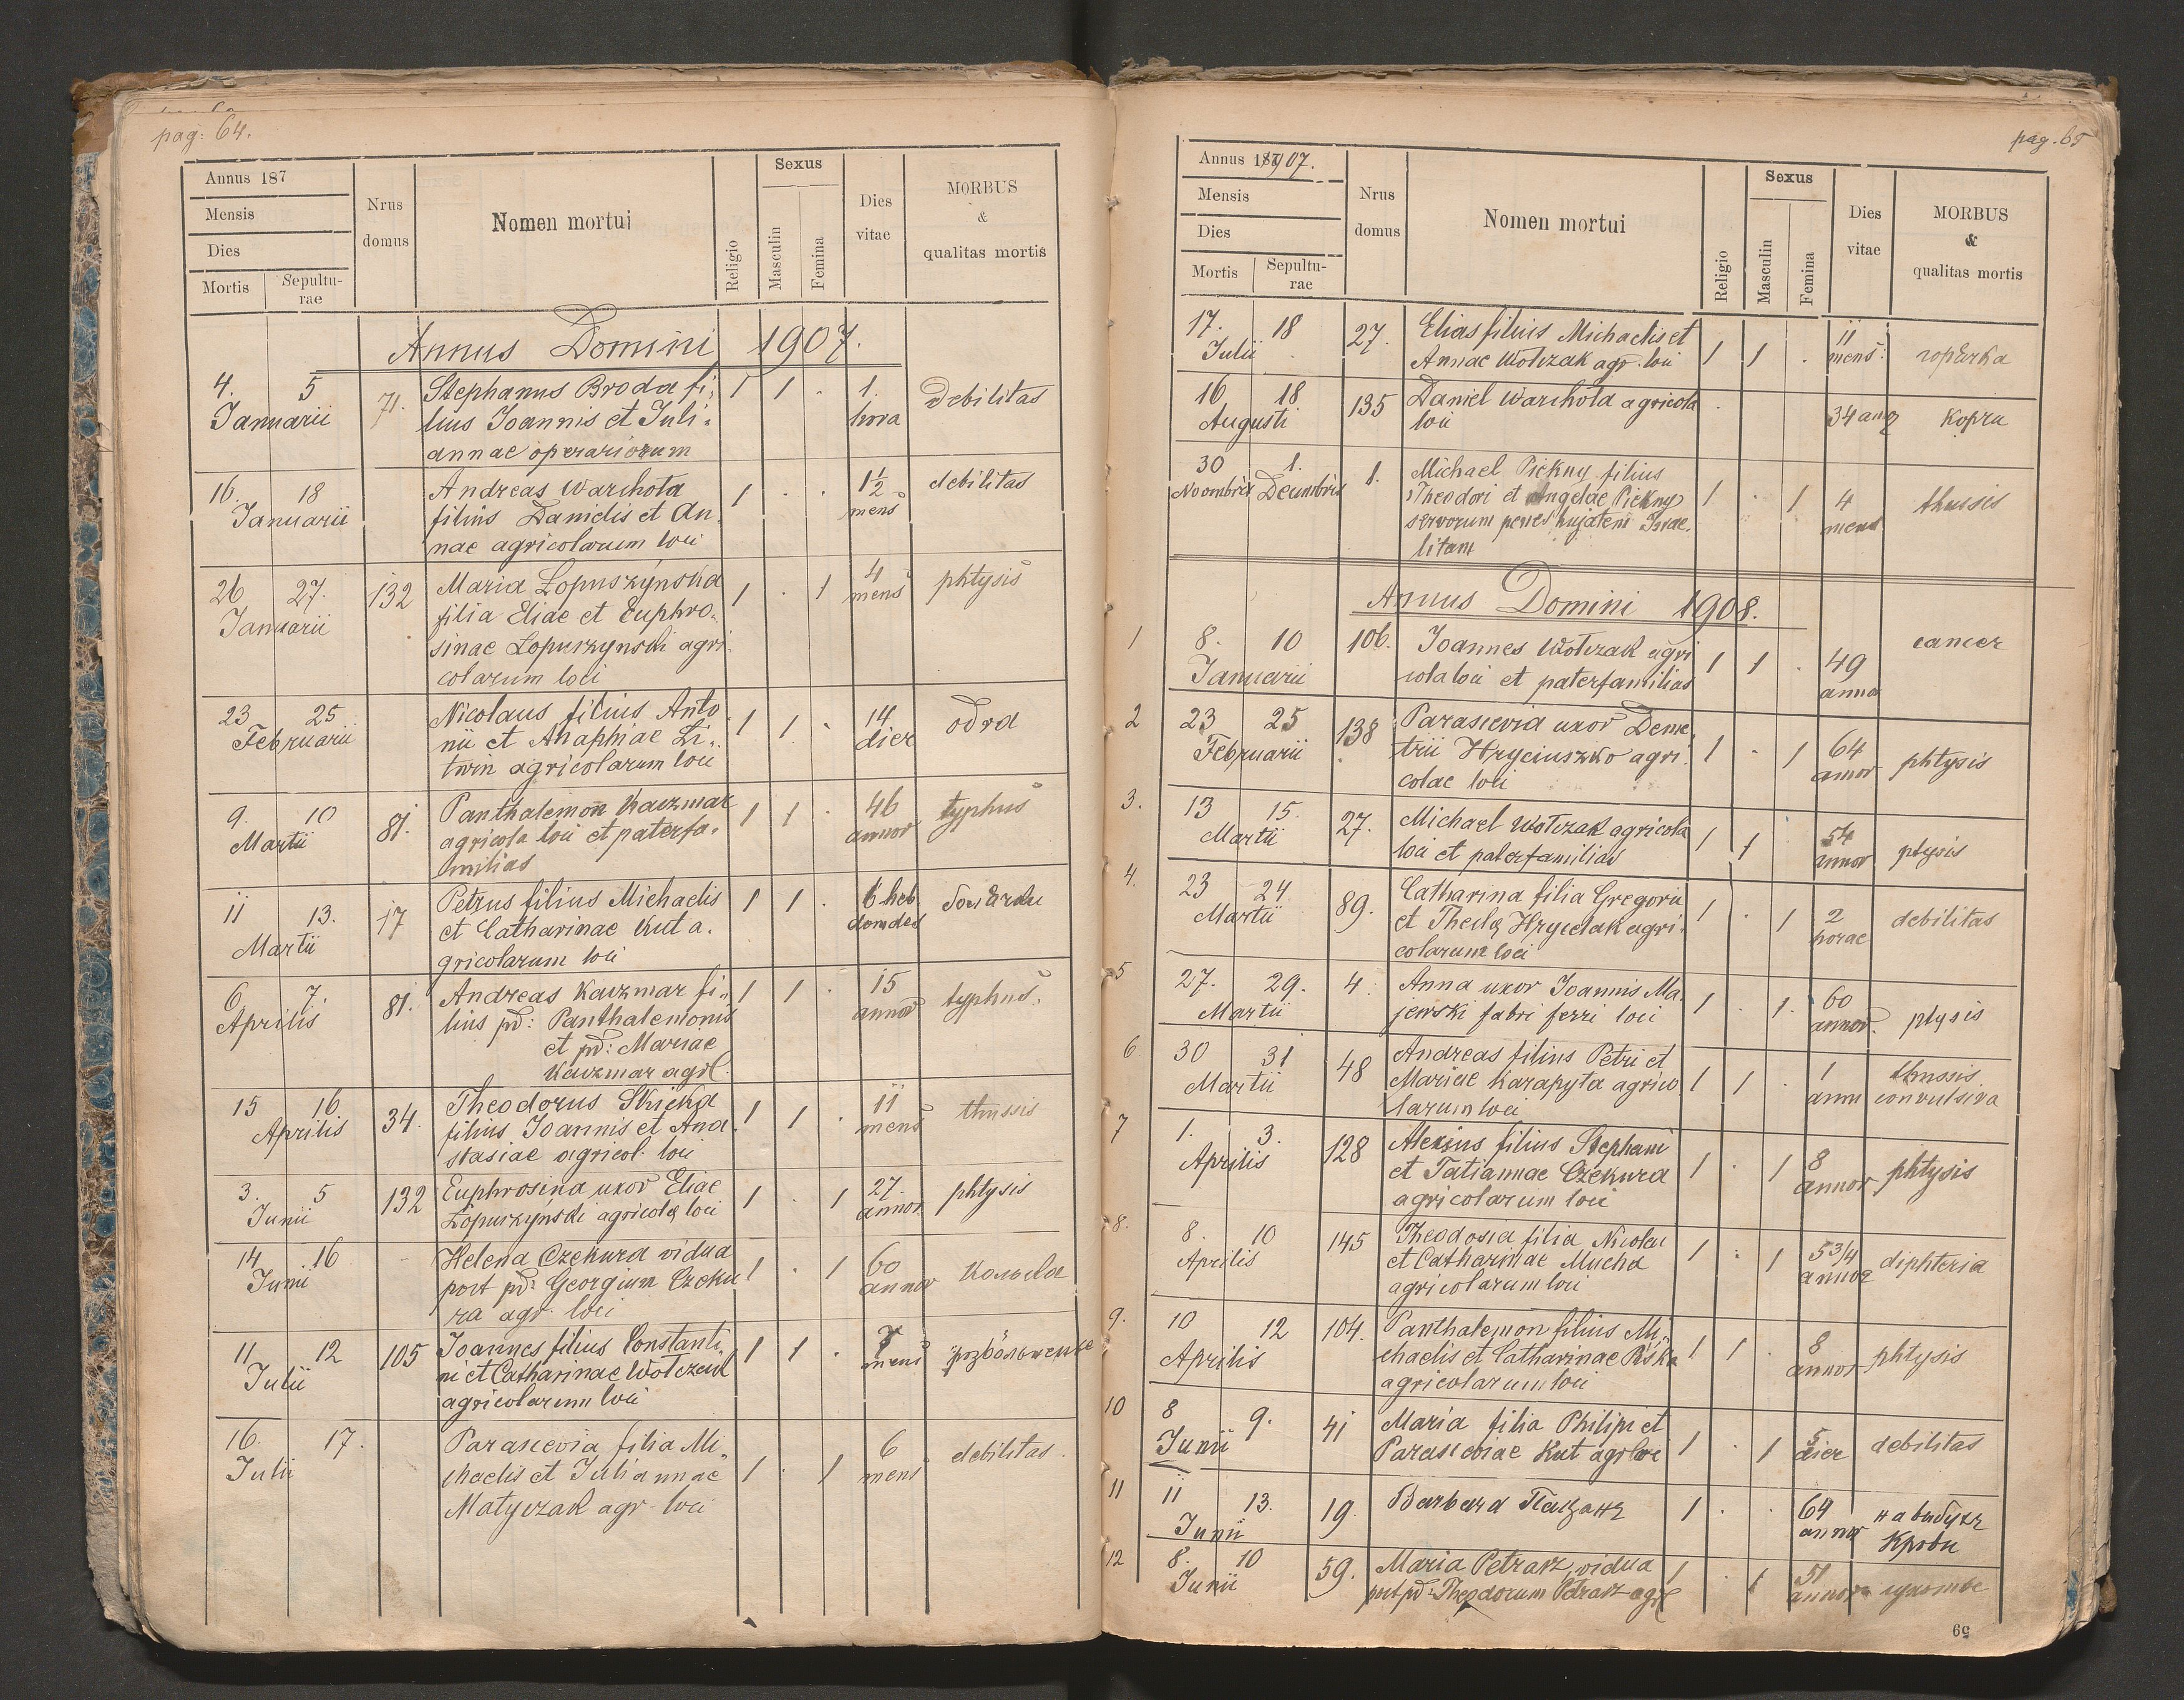 pag: 64.
Annus 187
Mensis
Dies
Mortis Sepultu-
rae
Nrus
domus
Nomen mortui
Religio
Sexus
Masculin
Femina
Dies
vitae
MORBUS
&
qualitas mortis
Annus Domini 1907.
4. 5 71. Stephanus Broda fi- 1 1 . 1. Debilitas
Januarii lius Joannis et Juli- hora
annae operariorum
16. 18 Andreas Warchoła 1 . . 1½ debilitas
Januarii filius Danielis et An- mens
nae agricolarum loci
26 27. 132 Maria Łopuszyńska 1 . 1 4 phtysis
Januarii filia Eliae et Euphro- mens
sinae Łopuszynski agri-
colarum loci
23 25 Nicolaus filius Anto- 1 1 . 14 odra
Februarii nii et Ahaphiae Li- dier
twin agricolarum loci
9. 10 81. Panthalemon Kaczmar 1 1 . 46 typhus
Martii agricola loci et paterfa- annor
milias
11 13. 17 Petrus filius Michaelis 1 1 . 6 heb
Martii et Catharinae Kut a- domades
gricolarum loci
6 7. 81. Andreas Kaczmar fi- 1 1 . 15 typhus.
Aprilis lius pd: Panthalemonis annor
et pd: Mariae
Kaczmar agrl.
15 16 34. Theodorus Skicka 1 1 . 11 thussis
Aprilis filius Joannis et Ana- mens
stasiae agricol. loci
3. 5 132 Euphrosina uxor Eliae 1 . 1 27 phtysis
Junii Łopuszyński agricolę loci annor
14 16 Helena Czekura vidua 1 . 1 60
Junii post pd: Georgium Czeku- annor
ra agr. loci
11 12 105 Joannes filius Constanti- 1 1 . 7
Julii ni et Catharinae Wołczak mens
agricolarum loci
16. 17. Parascevia filia Mi- 1 . 1 6 debilitas.
Julii chaelis et Juliannae mens
Matyczak agr. loci
pag. 65
Annus 1907.
Mensis
Dies
Mortis Sepultu-
rae
Nrus
domus
Nomen mortui
Religio
Sexus
Masculin
Femina
Dies
vitae
MORBUS
&
qualitas mortis
17. 18 27. Elias filius Michaelis et 1 1 . 11
Julii Annae Wołczak agr. loci mens.
16 18 135 Daniel Warchoła agricola . 34
Augusti loci
30 1. 1. Michael Piekny filius 1 . 1 4 thussis
Novembris Decembris Theodori et Angelae Piekny mens
servorum penes hujatem Israe-
litam
Annus Domini 1908.
1 8. 10 106. Joannes Wołczak agri 1 1 . 49 cancer
Januarii cola loci et paterfamilias anno
2 23 25 138 Parascevia uxor Deme- 1 . 1 64 phtysis
Februarii trii Hryciuszko agri- annor
colae loci
3. 13 15. 27. Michael Wołczak agricola 1 1 54 ptysis
Martii loci et paterfamilias annor
4. 23 24 89. Catharina filia Gregorii 1 . 1 2 debilitas
Martii et Theclę Hrycelak agri- horae
colarum loci
5 27. 29. 4. Anna uxor Joannis Ma- 1 . 1. 60 ptysis
Martii jewski fabri ferri loci annor.
6 30 31 48 Andreas filius Petri et 1 1 . 1 thussis
Martii Mariae Karapyta agrico annu convulsiva
larum loci
7 1. 3. 128 Alexius filius Stephani 1 . 1 8 phtysis
Aprilis et Tatiannae Czekura annor
agricolarum loci
8. 8. 10 145 Theodosia filia Nicolai 1 . 1 5 3/4 diphteria
Aprilis et Catharinae Mucha annor
agricolarum loci
9. 10 12 104. Panthalemon filius Mi- 1 1 . 8 phtysis
Aprilis chaelis et Catharinae annor
agricolarum loci
10 8 9. 41 Maria filia Philipi et 1 . 1 5 debilitas
Junii Parasceviae Kut agr loci dier
11 11 13. 19. Barbara 1 . . 64 на
Junii annor крови
12 8. 10 59. Maria Petrasz, vidua 1 . 1 51 сухоты
Junii post pd: Theodorum Petrasz agrl annor